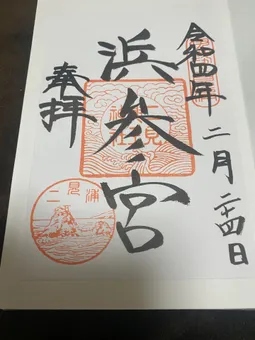 令和四年二月二十四日
浜参宮
奉拝
二見浦